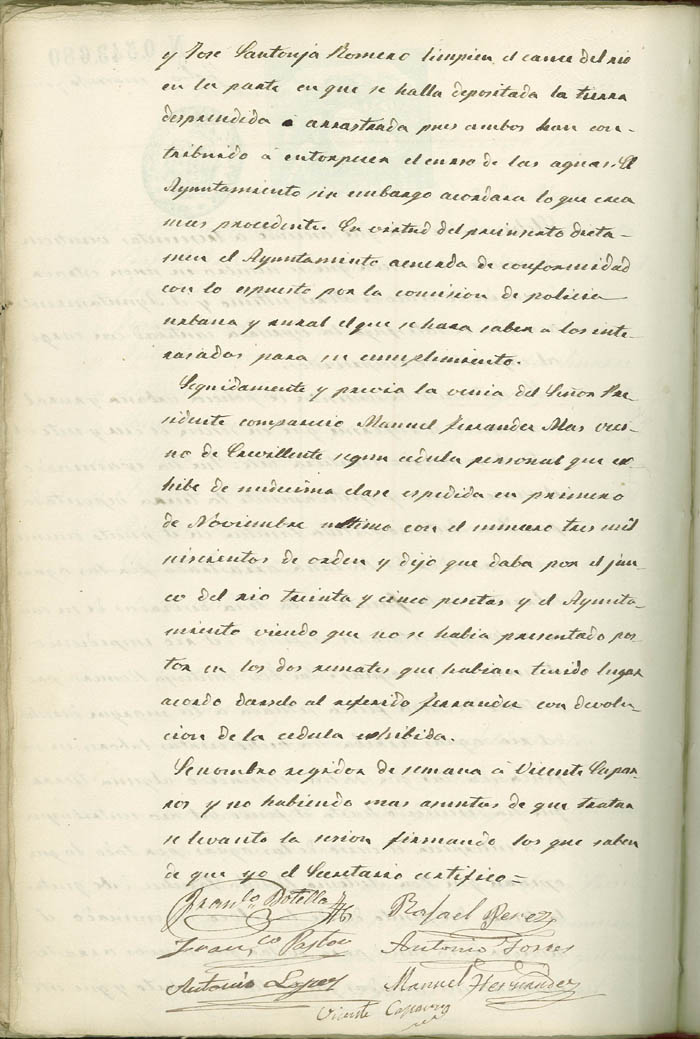 y Jose Santonja Romero limpien el cauce del rio
en la parte en que se halla depositada la tierra
desprendida ó arrastrada pues ambos han con-
tribuido á entorpecer el curso de las aguas. El
Ayuntamiento sin embargo acordara lo que crea
mas procedente. En virtud del preinserto dicta-
men el Ayuntamiento acuerda de conformidad
con lo espuesto por la comision de policia
urbana y rural el que se hara saber a los inte-
rasados para su cumplimiento.
Seguidamente y previa la venia del Señor Pre-
sidente comparecio Manuel Ferrandez Mas veci-
no de Crevillente segun cédula personal que ex-
hibe de undecima clase espedida en primero
de Noviembre ultimo con el numero tres mil
niscientos de orden y dijo que daba por el jun-
co del rio treinta y cinco pesetas y el Ayunta-
miento viendo que no se habia presentado pos-
tor en los dos remates que habian tenido lugar
acordo darselo al referido Ferrandez con devolu-
cion de la cedula exhibida.
Se nombro regidor de semana á Vicente Capar-
ros y no habiendo mas asuntos de que tratar
se levanto la sesion firmando los que saben
de que yo el Secretario certifico=
Franco Botella Rafael Perez
Franco Pastor Antonio Torres
Antonio Lopez Manuel Hernandez
Vicente Caparros